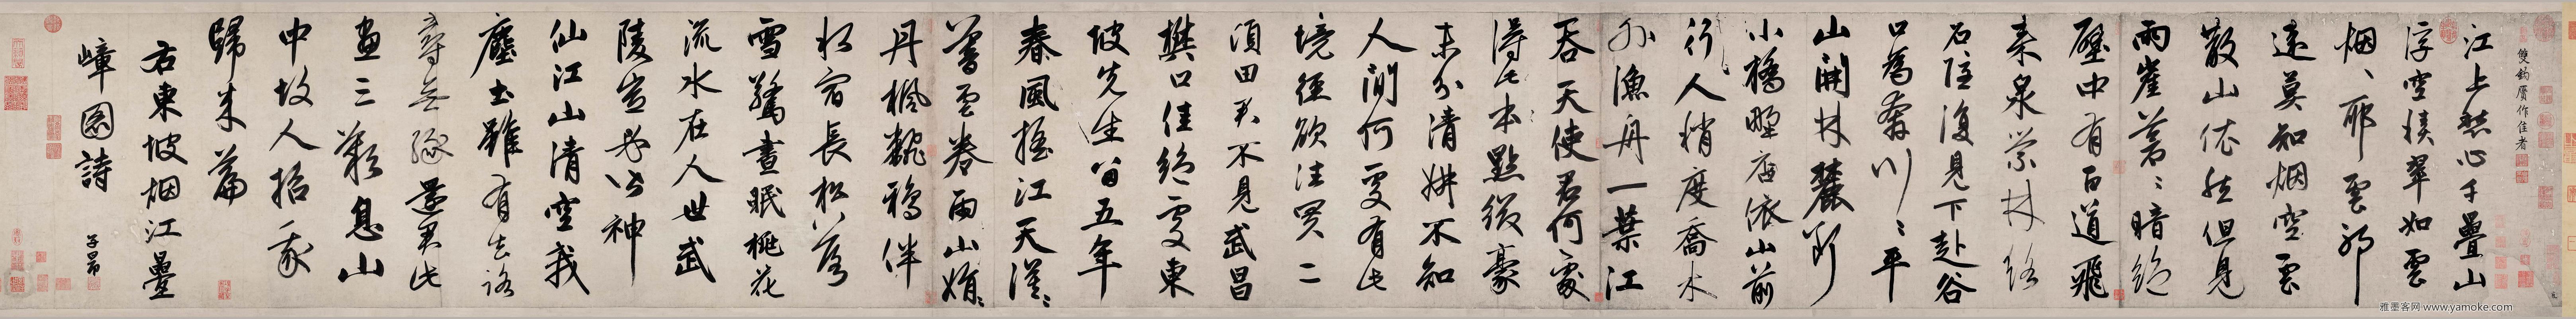 雙鈎贗作佳者
江上愁心千疊山
浮空積翠如雲
烟〻耶雲邪
遠莫知烟空雲
散山依然但見
兩崖蒼〻暗絕
壁中有百道飛
來泉縈林絡
石隱復見下赴谷
口為奔川〻平
山開林麓斷
小橋野店依山前
行人稍度喬木
外漁舟一葉江
吞天使君何處
得此本點綴豪
末分清妍不知
人間何處有此
境徑欲往買二
頃田君不見武昌
樊口佳絕處東
坡先生留五年
春風搖江天漠〻
暮雲卷雨山娟〻
丹楓翻鴉伴
水宿長松落
雪驚晝眠桃花
流水在人世武
陵豈必皆神
仙江山清空我
塵土雖有去路
尋無緣還君此
畫三歎息山
中故人招我
歸來篇
右東坡烟江疊
嶂圖詩 子昂
雅墨客网-www.yamoke.com